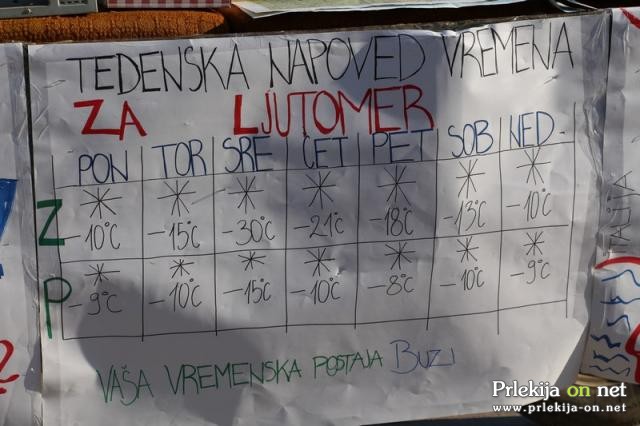 TEDENSKA NAPOVED VREMENA
ZA LJUTOMER
PON TOR SRE ČET PET SOB NED
Z -10°C -15°C -30°C -21°C -18°C -13°C -10°C
P -9°C -10°C -15°C -10°C -8°C -10°C -9°C
VAŠA VREMENSKA POSTAJA BUZI
ITALIJA
Prlekija on net
www.prlekija-on.net